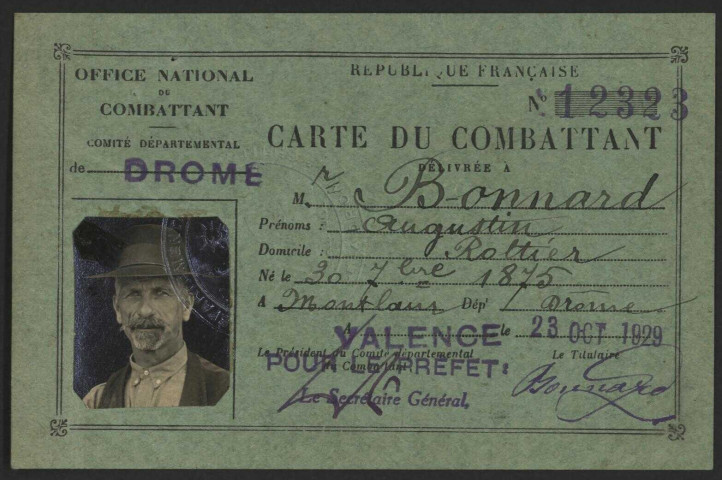 OFFICE NATIONAL
DU
COMBATTANT
COMITÉ DÉPARTEMENTAL
de DROME
RÉPUBLIQUE FRANÇAISE
N° 12323
CARTE DU COMBATTANT
DÉLIVRÉE À
M. Bonnard
Prénoms : Augustin
Domicile : Rottier
Né le 30 7bre 1875
A Montlaur Dépt Drôme
A VALENCE le 23 OCT 1929
Le Président du Comité départemental
du Combattant
Le Titulaire
POUR LE PREFET:
Le Secrétaire Général,
Bonnard